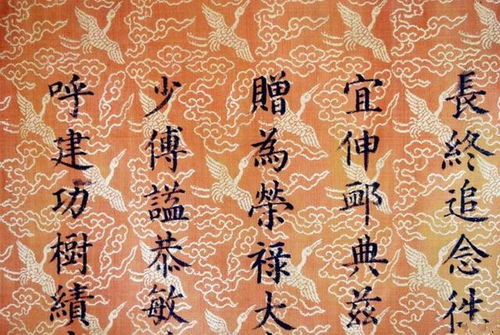 長終追念徃
宜伸䘏典茲
贈為榮祿大
少傅諡恭敏
呼建功樹績